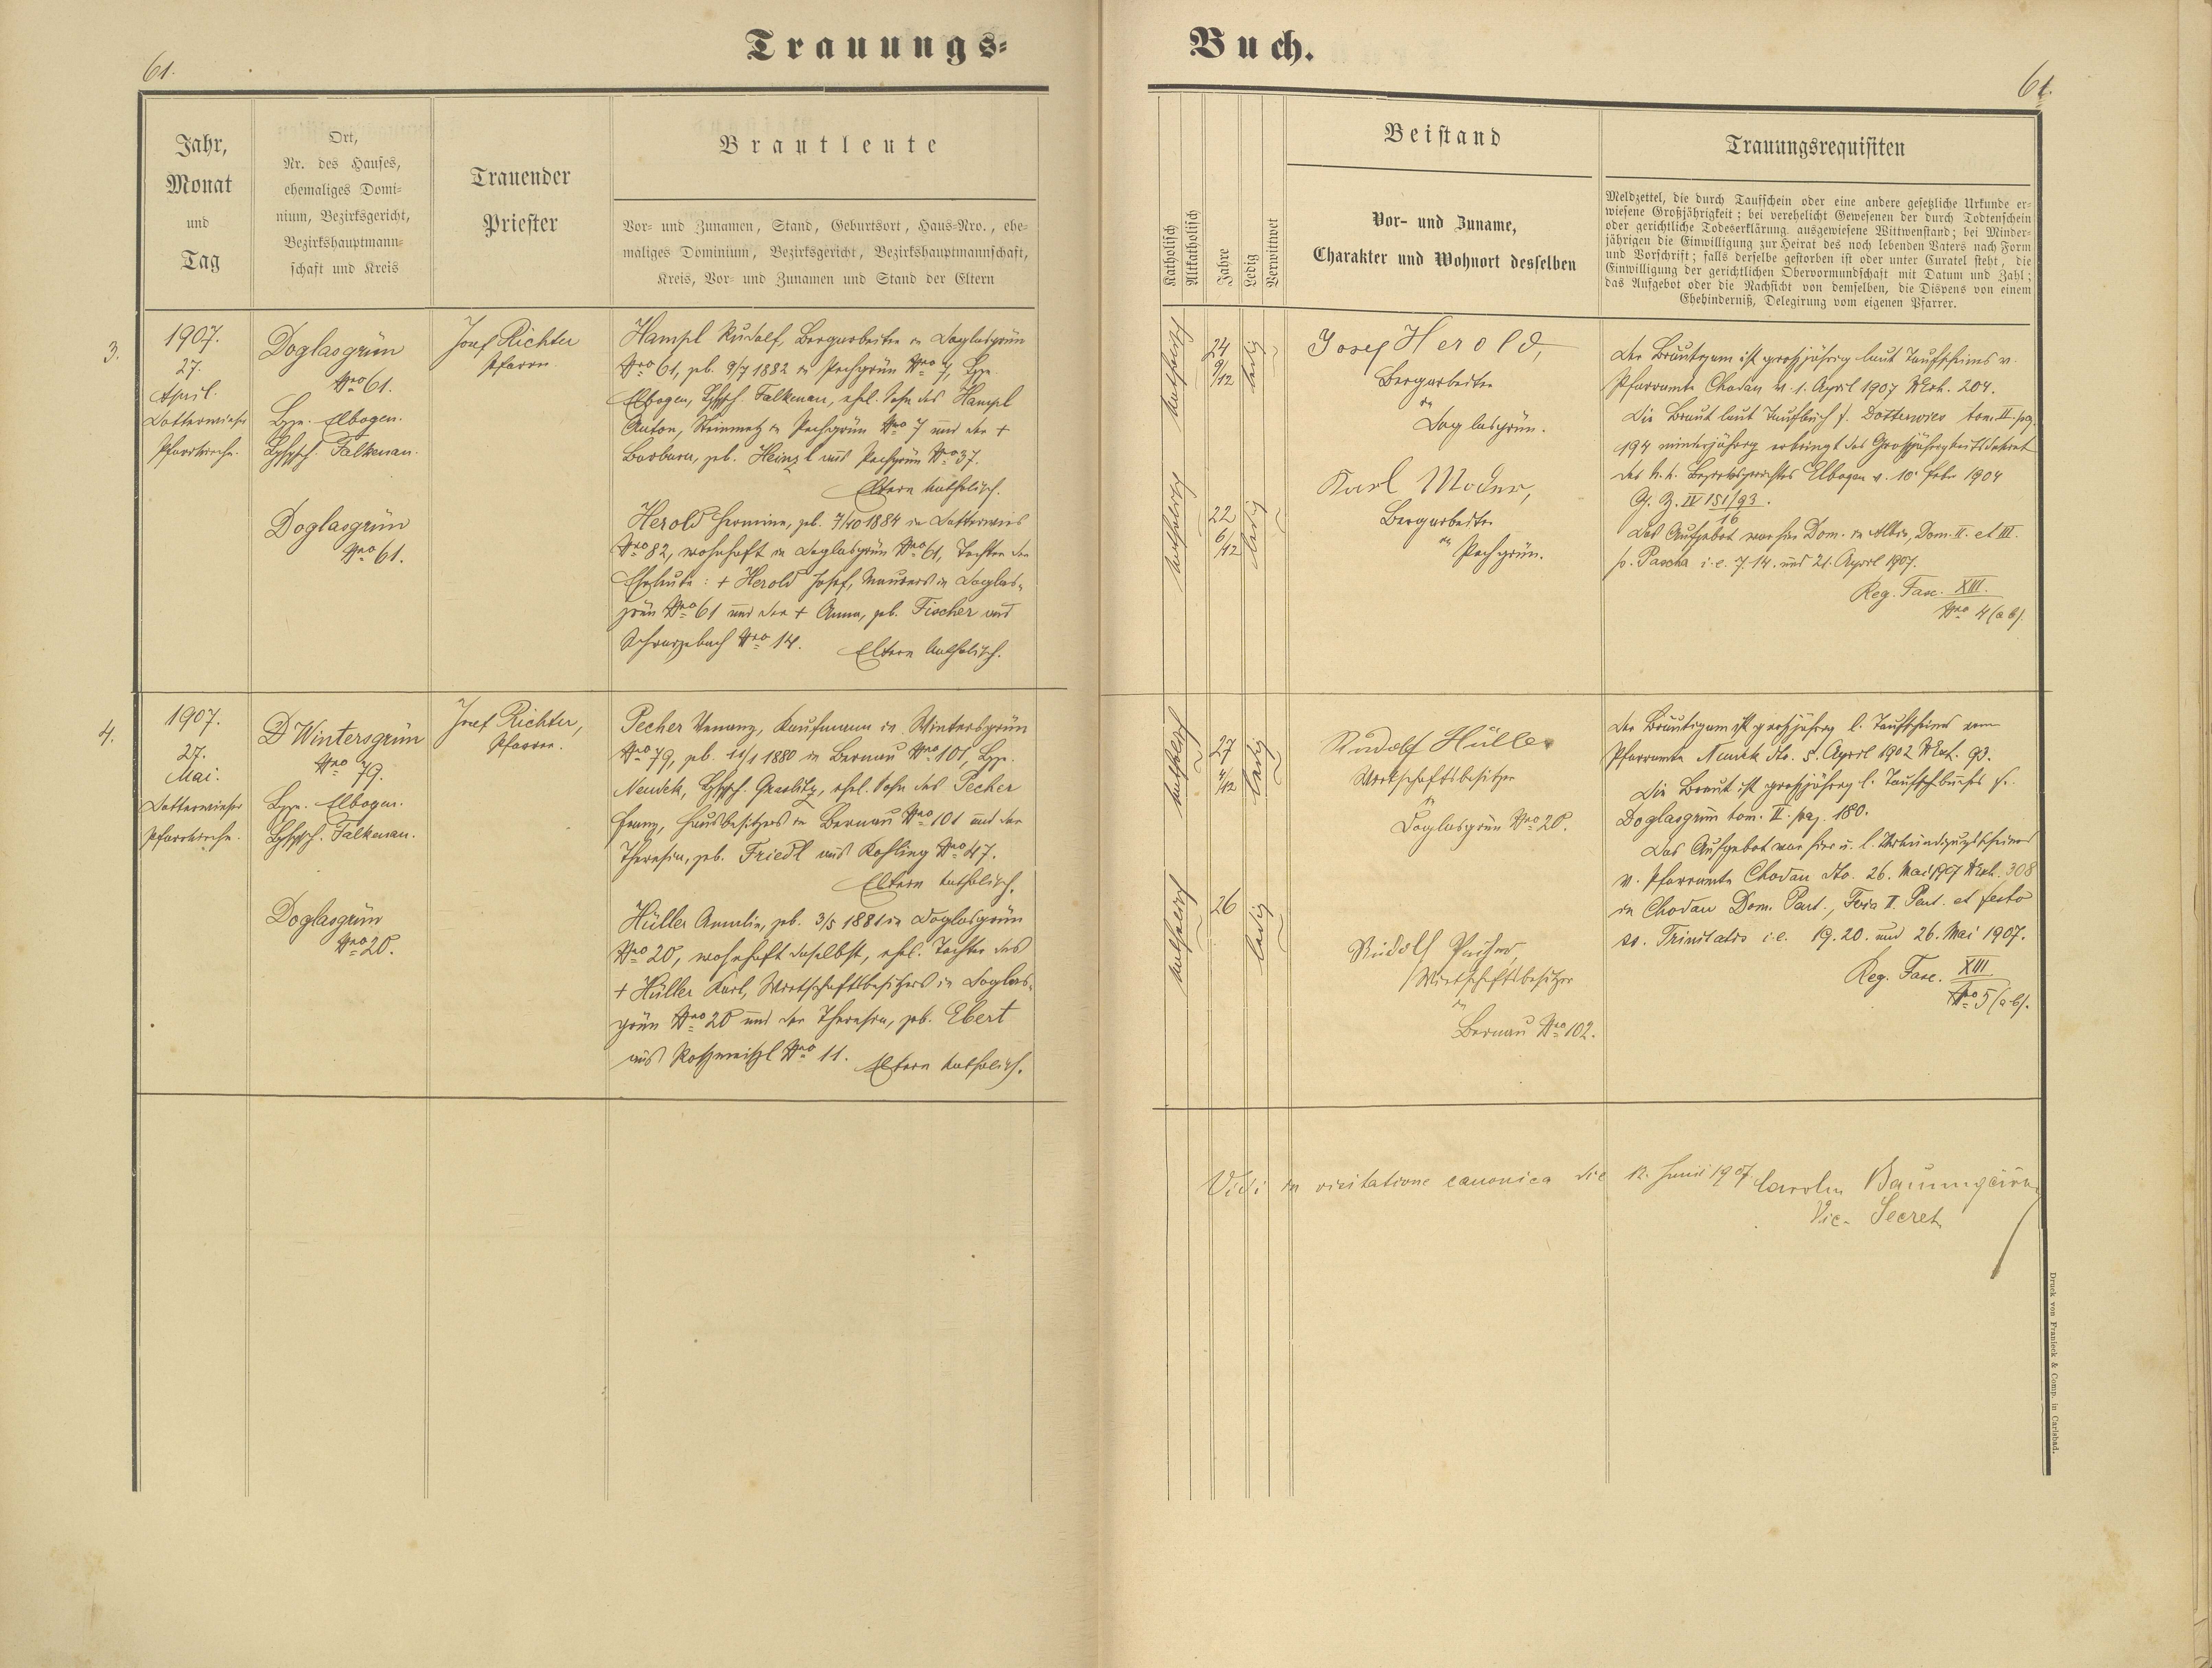 Trauungs-
Buch.
61.
61.
Jahr,
Monat
und
Tag
Ort,
Nr. des Hauses,
ehemaliges Domi-
nium, Bezirksgericht,
Bezirkshauptmann-
schaft und Kreis
Trauender
Priester
Brautleute
Vor- und Zunamen, Stand, Geburtsort, Haus-Nro., ehe-
maliges Dominium, Bezirksgericht, Bezirkshauptmannschaft,
Kreis, Vor- und Zunamen und Stand der Eltern
Katholisch
Altkatholisch
Jahre
Ledig
Verwittwet
Beistand
Vor- und Zuname,
Charakter und Wohnort desselben
Trauungsrequisiten
Meldzettel, die durch Taufschein oder eine andere gesetzliche Urkunde er-
wiesene Großjährigkeit; bei verehelicht Gewesenen der durch Todtenschein
oder gerichtliche Todeserklärung ausgewiesene Wittwenstand; bei Minder-
jährigen die Einwilligung zur Heirat des noch lebenden Vaters nach Form
und Vorschrift; falls derselbe gestorben ist oder unter Curatel steht, die
Einwilligung der gerichtlichen Obervormundschaft mit Datum und Zahl;
das Aufgebot oder die Nachsicht von demselben, die Dispens von einem
Ehehinderniß, Delegirung vom eigenen Pfarrer.
3.
1907.
27.
April.
Dotterwieser
Pfarrkirche.
Doglasgrün
Nro 61.
Bzg. Elbogen.
Bzhptsch. Falkenau.
Doglasgrün
Nro 61.
Josef Richter
Pfarrer
Hampl Rudolf, Bergarbeiter in Doglasgrün
Nro 61, geb. 9/7 1882 in Pechgrün Nro 7, Bzg.
Elbogen, Bzhptsch. Falkenau, ehel. Sohn des Hampl
Anton, Steinmetz in Pechgrün Nro 7 und der +
Barbara, geb. Heinzl aus Pechgrün Nro 37.
Eltern katholisch.
Herold Hermine, geb. 7/10 1884 in Dotterwies
Nro 82, wohnhaft in Doglasgrün Nro 61, Tochter der
Eheleute: + Herold Josef, Maurers in Doglas-
grün Nro 61 und der + Anna, geb. Fischer aus
Schwarzebach Nro 14. Eltern katholisch.
katholisch
24
9/12
ledig
katholisch
22
6/12
ledig
Josef Herold,
Bergarbeiter
in
Doglasgrün.
Karl Moder,
Bergarbeiter
in
Pechgrün.
Der Bräutigam ist großjährig laut Taufscheines v.
Pfarramte Chodau v. 1. April 1907 NExh. 204.
Die Braut laut Taufbuch f. Dotterwies tom. II. pag.
194 minderjährig erbringt das Großjährigkeitsdekret
des k. k. Bezirksgerichtes Elbogen v. 10. Feber 1904
G. Z. IV 151/93.
16
Das Aufgebot war hier Dom. in Albis, Dom. II. et III.
p. Pascha i. e. 7. 14. und 21. April 1907.
Reg. Fasc. XIII.
Nro 4 (a b).
4.
1907.
27.
Mai.
Dotterwieser
Pfarrkirche.
Wintersgrün
Nro 79.
Bzg. Elbogen.
Bzhptsch. Falkenau.
Doglasgrün
Nro 20.
Josef Richter,
Pfarrer.
Pecher Venanz, Kaufmann in Wintersgrün
Nro 79, geb. 11/1 1880 in Bernau Nro 101, Bzg.
Neudek, Bzhptsch. Graslitz, ehel. Sohn des Pecher
Franz, Hausbesitzers in Bernau Nro 101 und der
Theresia, geb. Friedl aus Kohling Nro 47.
Eltern katholisch.
Hüller Amalia, geb. 3/5 1881 in Doglasgrün
Nro 20, wohnhaft daselbst, ehel. Tochter des
+ Hüller Karl, Wirtschaftsbesitzers in Doglas-
grün Nro 20 und der Theresia, geb. Ebert
aus Roßmeißl Nro 11. Eltern katholisch.
katholisch
27
4/12
ledig
katholisch
26
ledig
Rudolf Hüller
Wirtschaftsbesitzer
in
Doglasgrün Nro 20.
Rudolf
Wirtschaftsbesitzer
in
Bernau Nro 102.
Der Bräutigam ist großjährig l. Taufscheines vom
Pfarramte Neudek dto. 5. April 1902 NExh. 93.
Die Braut ist großjährig l. Taufbuches f.
Doglasgrün tom. II. pag. 180.
Das Aufgebot war hier u. l. Verkündigungsscheines
v. Pfarramte Chodau dto. 26. Mai 1907 NExh. 308
in Chodau Dom. Pent., Feria II. Pent. et festo
ss. Trinitatis i. e. 19. 20. und 26. Mai 1907.
Reg. Fasc. XIII
Nro 5 (a-b).
Vidi in visitatione canonica die 12. Junii 1907. Carolus
Vic. Secret.
Druck von Franieck & Comp. in Carlsbad.